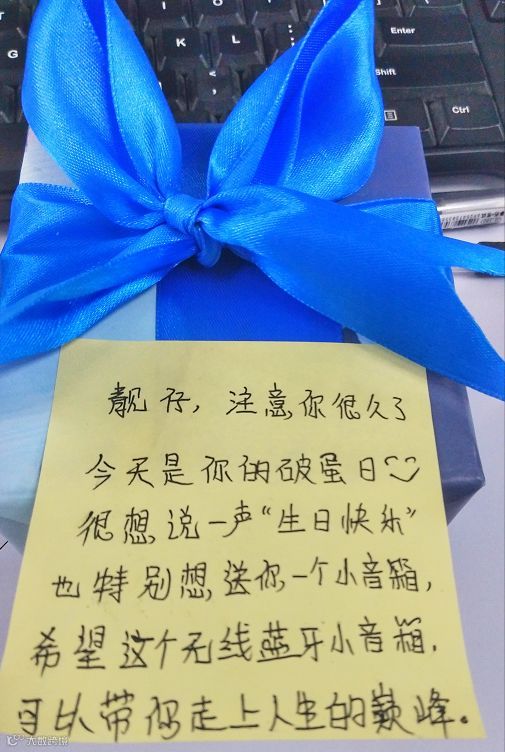 K
L
Enter
Shift
Ctrl
靓仔，注意你很久了
今天是你的破蛋日
很想说一声“生日快乐”
也特别想送你一个小音箱，
希望这个无线蓝牙小音箱.
可以带你走上人生的巅峰。
大数跨境